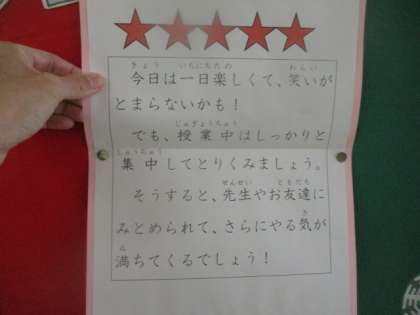 今日は一日楽しくて、笑いが
とまらないかも！
でも、授業中はしっかりと
集中してとりくみましょう。
そうすると、先生やお友達に
みとめられて、さらにやる気が
満ちてくるでしょう！